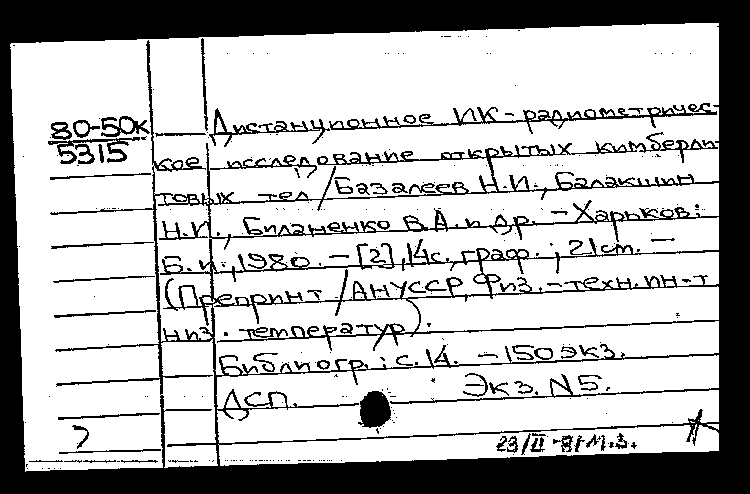 80-50к
5315
Дистанционное ИК-радиометричес-
кое исследование открытых кимберли-
товых тел / Базалеев Н.И., Балакшин
Н.И., Биланенко В.А. и др. - Харьков:
Б.и., 1980. - [2], 14с., граф.; 21 cm. -
(Препринт / АНУССР, Физ.-техн. ин-т
низ. температур).
Библиогр.: с. 14. - 150 экз.
ДСП. Экз. N 5.
23/II-81 М.З.